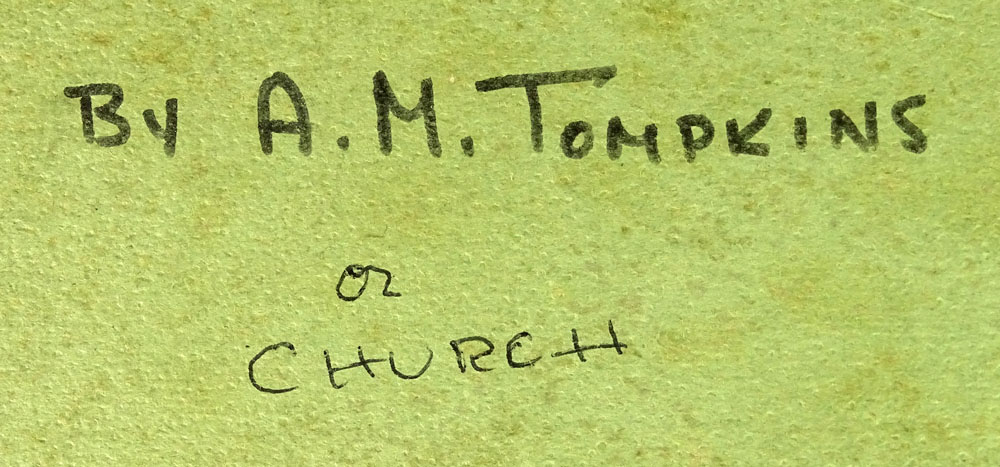 By A.M. TOMPKINS
or
CHURCH